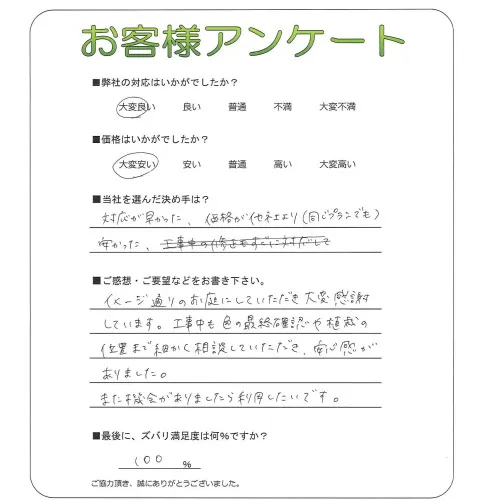 お客様アンケート
■弊社の対応はいかがでしたか？
大変良い 良い 普通 不満 大変不満
■価格はいかがでしたか？
大変安い 安い 普通 高い 大変高い
■当社を選んだ決め手は？
対応が早かった、価格が他社より（同じプランでも）
安かった、工事中の修正もすぐに対応して
■ご感想・ご要望などをお書き下さい。
イメージ通りのお庭にしていただき大変感謝
しています。工事中も色の最終確認や植栽の
位置まで細かく相談していただき、安心感が
ありました。
また機会がありましたら利用したいです。
■最後に、ズバリ満足度は何%ですか？
100 %
ご協力頂き、誠にありがとうございました。